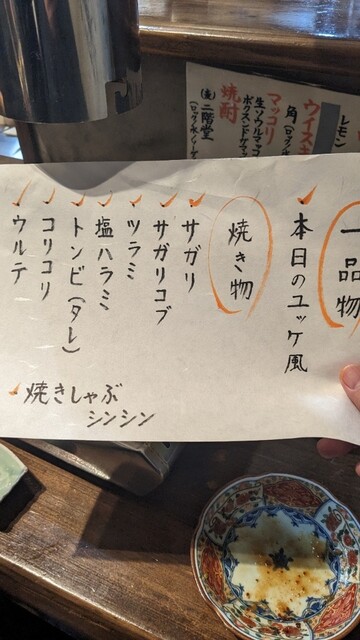 一品物
本日のユッケ風
焼き物
サガリ
サガリコブ
ツラミ
塩ハラミ
トンビ(タレ)
コリコリ
ウルテ
焼きしゃぶ
シンシン
レモン
ウイスキ
角(ロック/水
マッコリ
生ソウルマッコ
焼酎
(麦)二階堂
(ロック/水/ソーダ